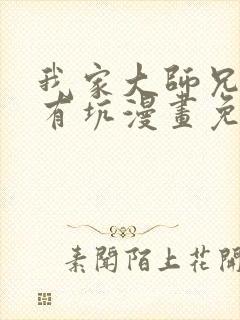 我家大師兄
有坑漫畫免
素聞陌上花開